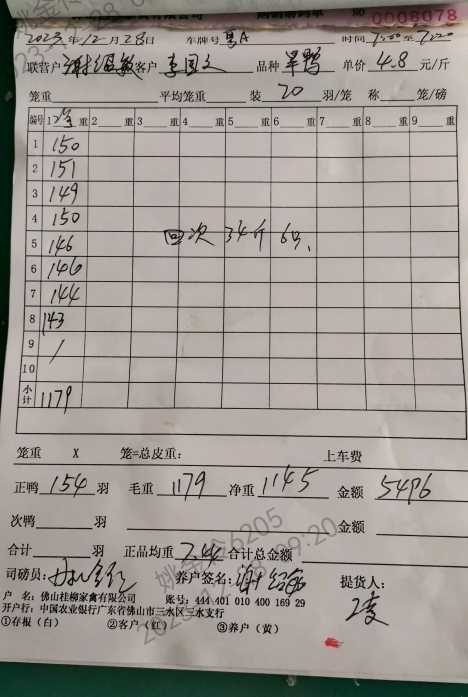 NO 0008078
2023年12月28日 车牌号 粤A 时间 7:00至7:20
联营户 谢绍敏 客户 李国文 品种 旱鸭 单价 4.8 元/斤
笼重 平均笼重 装 20 羽/笼 称 笼/磅
编号 1 笼重 2 重 3 重 4 重 5 重 6 重 7 重 8 重 9 重
1 150
2 151
3 149
4 150
5 146 回次 34斤 6只、
6 146
7 144
8 143
9 /
10
小计 1179
笼重 X 笼=总皮重: 上车费
正鸭 154 羽 毛重 1179 净重 1145 金额 5496
次鸭 羽 金额
合计 羽 正品均重 7.44 合计总金额
司磅员: 养户签名: 谢绍敏 提货人:
户 名: 佛山桂柳家禽有限公司 账号: 444 401 010 400 169 29
开户行: 中国农业银行广东省佛山市三水区三水支行
①存根（白） ②客户（红） ③养户（黄）